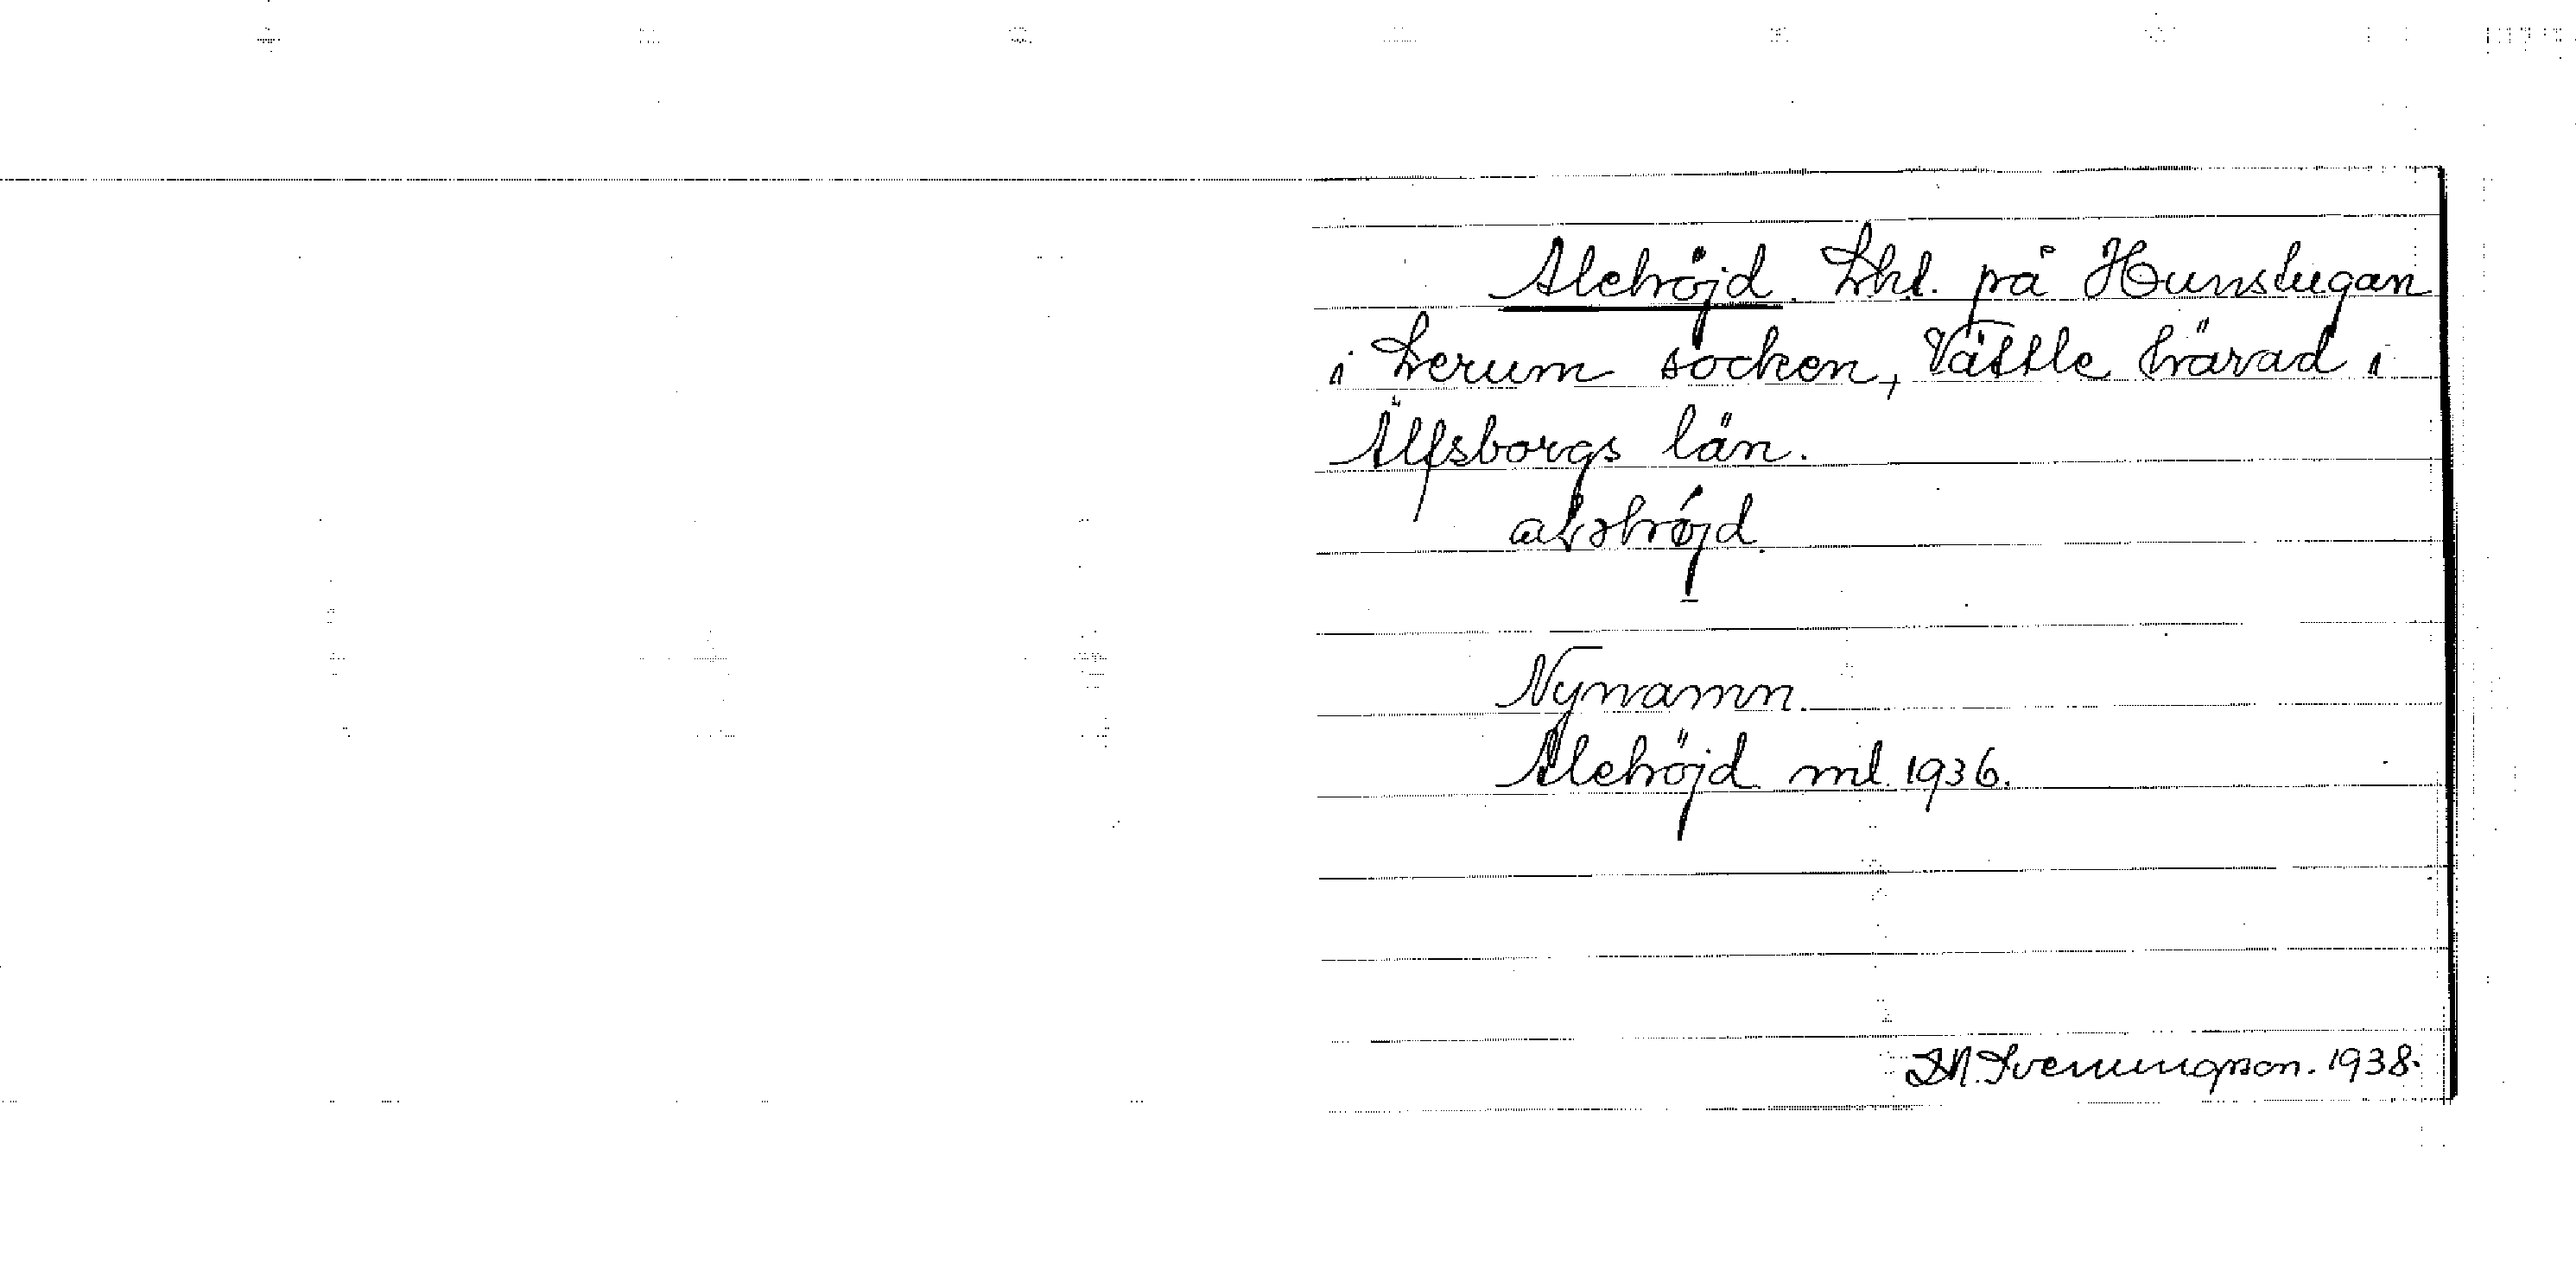 Alehöjd. Lht. på Hunstugan
i Lerum socken, Vättle härad i
Älfsborgs län.
Nynamn.
Alehöjd ml. 1936.
Sveningson. 1938.